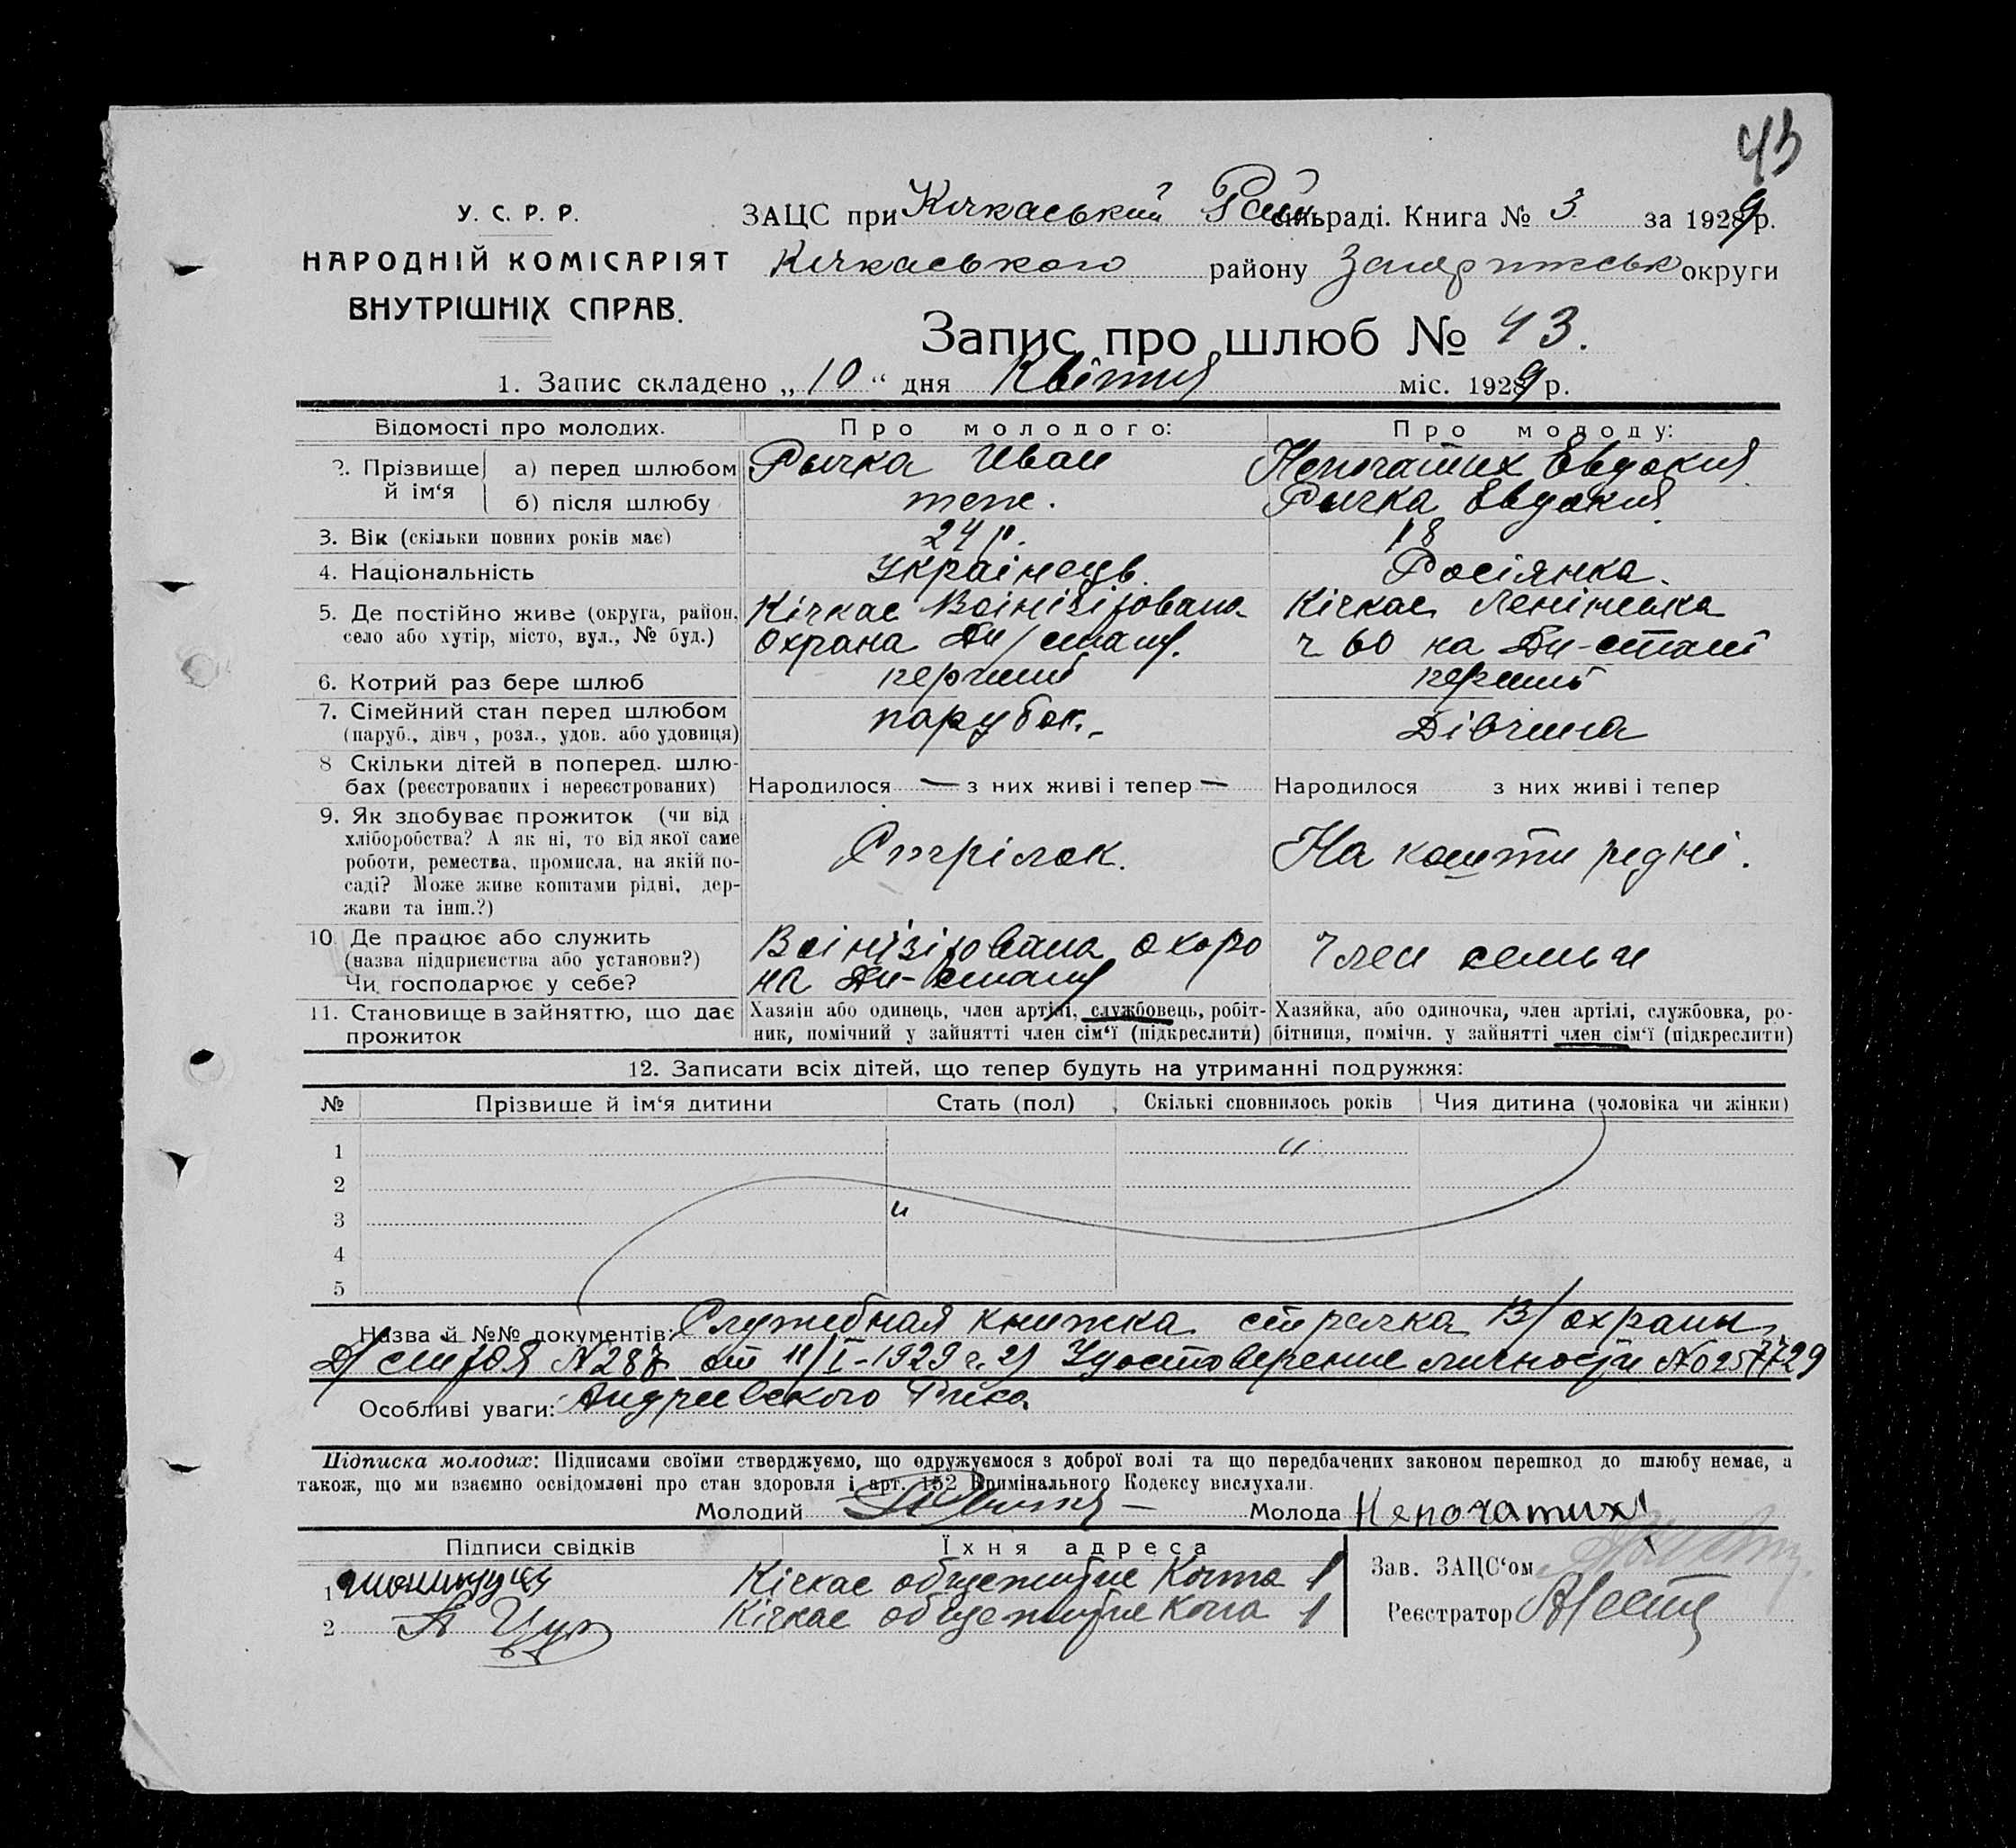 43
У. С. Р. Р.
НАРОДНІЙ КОМІСАРІЯТ
ВНУТРІШНІХ СПРАВ.
ЗАЦС при Кічкаський Рай сільраді. Книга № 3 за 1929 р.
Кічкаського району округи
Запис про шлюб № 43.
1. Запис складено „10“ дня Квітня міс. 1929 р.
Відомості про молодих. Про молодого: Про молоду:
2. Прізвище й ім‘я а) перед шлюбом Рычка Иван Непочатих Евдокия
б) після шлюбу теж. Рычка Евдокия
3. Вік (скільки повних років має) 24 р. 18
4. Національність Українець. Росіянка.
5. Де постійно живе (округа, район, Кічкас Воінізірована Кічкас Ленінська
село або хутір, місто, вул., № буд.) Охрана Дн/стану. ч 60 на Дн-стані
6. Котрий раз бере шлюб перший перший
7. Сімейний стан перед шлюбом парубок. Дівчина
(паруб., дівч., розл., удов. або удовиця)
8 Скільки дітей в поперед. шлю-
бах (реєстрованих і нереєстрованих) Народилося — з них живі і тепер — Народилося з них живі і тепер
9. Як здобуває прожиток (чи від
хліборобства? А як ні, то від якої саме
роботи, ремества, промисла, на якій по- Стрілок. На кошти рідні.
саді? Може живе коштами рідні, дер-
жави та інш.?)
10. Де працює або служить Воінізірована охоро Член семьи
(назва підприємства або установи?) на Дн-стану
Чи господарює у себе?
11. Становище в зайняттю, що дає Хазяін або одинець, член артілі, службовець, робіт- Хазяйка, або одиночка, член артілі, службовка, ро-
прожиток ник, помічний у зайнятті член сім‘ї (підкреслити) бітниця, помічн. у зайнятті член сім‘ї (підкреслити)
12. Записати всіх дітей, що тепер будуть на утриманні подружжя:
№ Прізвище й ім‘я дитини Стать (пол) Скількі сповнилось років Чия дитина (чоловіка чи жінки)
1 "
2
3 "
4
5
Назва й №№ документів: Служебная книжка стрелка В/охраны
Д/строя № 287 от 11/I-1929 г. 2) Удостоверение личности
Особливі уваги: Андреевского Рика
Підписка молодих: Підписами своїми стверджуємо, що одружуємося з доброї волі та що передбачених законом перешкод до шлюбу немає, а
також, що ми взаємно освідомлені про стан здоровля і арт. 152 Кримінального Кодексу вислухали.
Молодий Молода Непочатих
Підписи свідків Їхня адреса
1 Кічкас общежитие 1
2 Кічкас общежитие 1
Зав. ЗАЦС‘ом
Реєстратор